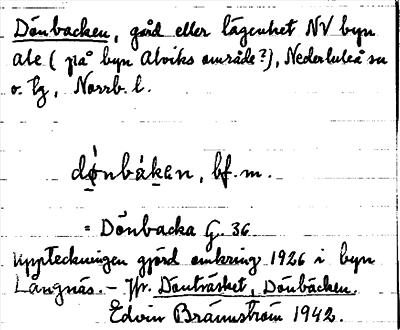 Dönbacken, gård eller lägenhet NV byn
Ale (på byn Alviks område?), Nederluleå sn
o. tg, Norrb. l.
dǿnbàken, bf. m.
= Dönbacka G. 36.
Uppteckningen gjord omkring 1926 i byn
Långnäs. – Jfr. Dönträsket, Dönbäcken.
Edvin Brännström 1942.